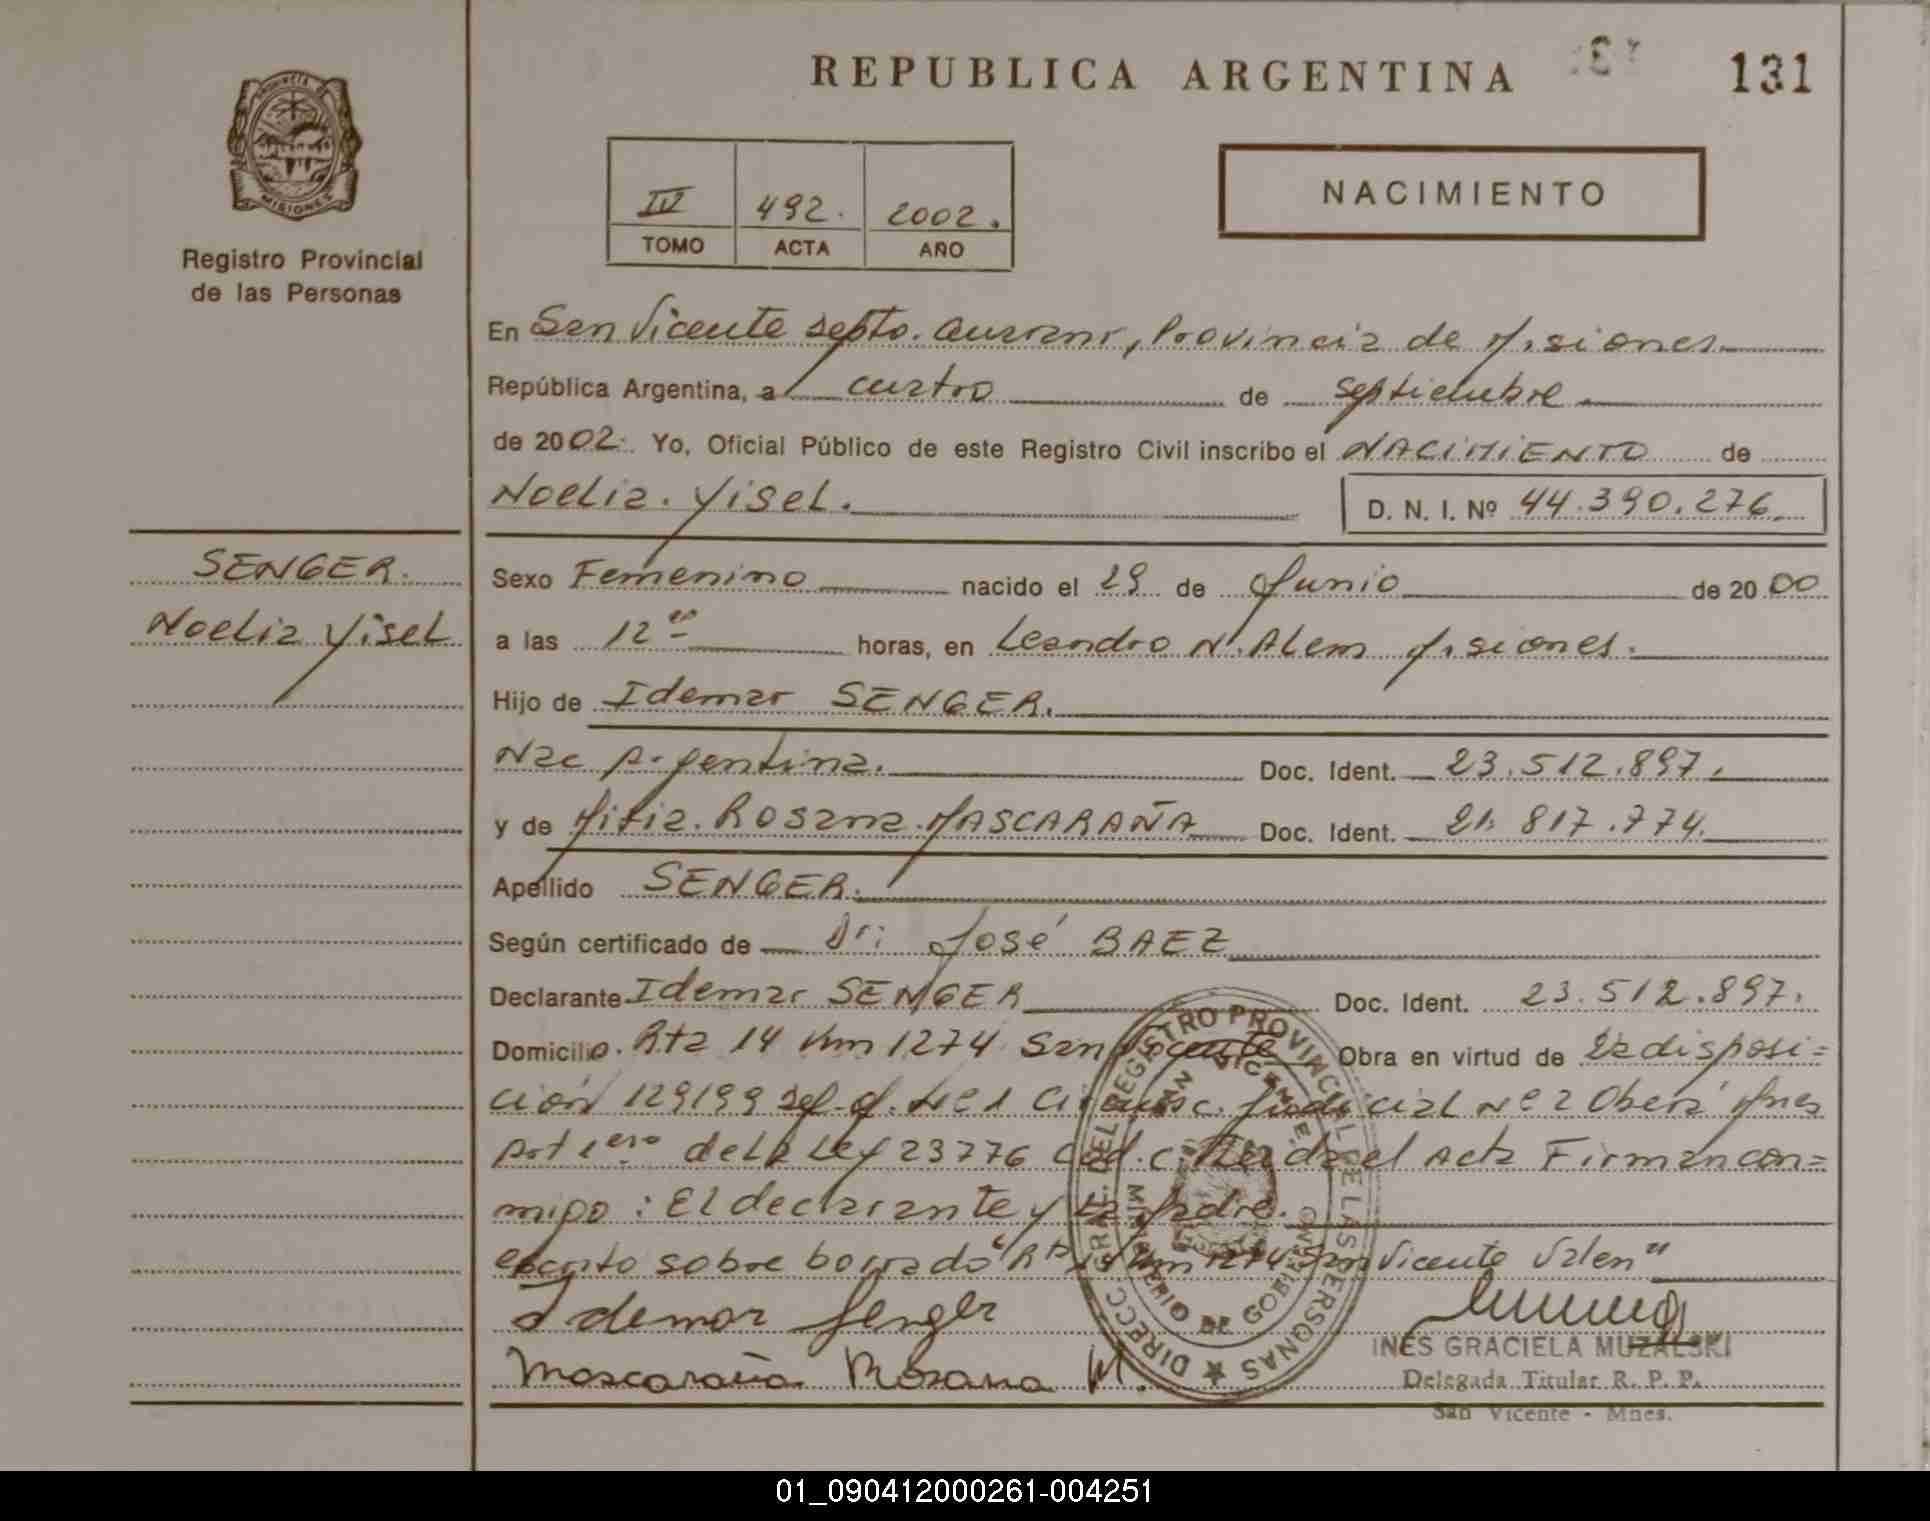 REPUBLICA ARGENTINA
131
PROVINCIA DE
MISIONES
Registro Provincial
de las Personas
IV 492. 2002.
TOMO ACTA AÑO
NACIMIENTO
En San Vicente Depto. Guarani, Provincia de Misiones
República Argentina, a cuatro de Septiembre
de 2002. Yo, Oficial Público de este Registro Civil inscribo el NACIMIENTO de
Noelia. Yisel. D. N. I. Nº 44.390.276
SENGER.
Noelia Yisel
Sexo Femenino nacido el 29 de Junio de 2000
a las 12 horas, en Leandro N. Alem Misiones.
Hijo de Idemar SENGER.
Nac Argentina. Doc. Ident. 23.512.897.
y de Rosana MASCARAÑA Doc. Ident. 21.817.774.
Apellido SENGER.
Según certificado de Dr: José BAEZ
Declarante Idemar SENGER Doc. Ident. 23.512.897.
Domicilio. Rta 14 Km 1274 San Vicente Obra en virtud de la disposi=
ción 129199 Nº 1 Circunsc. Judicial Nº 2 Oberá Mnes
Art 1ero de la Ley 23776 el Acta Firman con=
migo: El declarante y la Madre.
escrito sobre borrado "Rta 14 Km 1274 San Vicente Valen"
Idemar Senger
Mascaraña Rosana M.
DIRECC. GRAL. DEL REGISTRO PROVINCIAL DE LAS PERSONAS
SAN VICENTE
MINISTERIO DE GOBIERNO
INES GRACIELA MUZALSKI
Delegada Titular R. P. P.
San Vicente - Mnes.
01_090412000261-004251